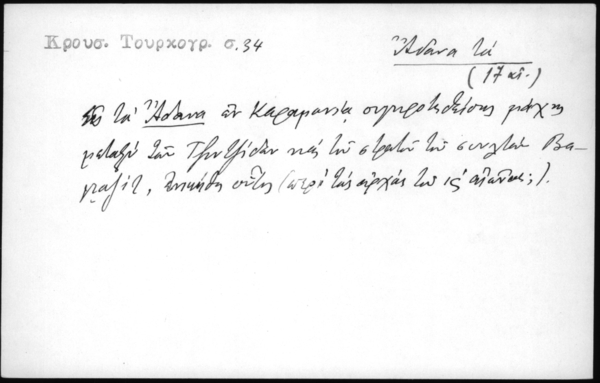 Κρουσ. Τουρκογρ. σ. 34
Ἄδανα τά
(17 αἰ.)
Εἰς τά Ἄδανα ἐν Καραμανίᾳ συγκροτηθείσης μάχης
μεταξύ τῶν καί τοῦ στρατοῦ τοῦ σουλτάν Βα-
γιαζίτ, ἐνικήθη οὗτος (περί τάς ἀρχάς τοῦ ις΄ αἰῶνος;).